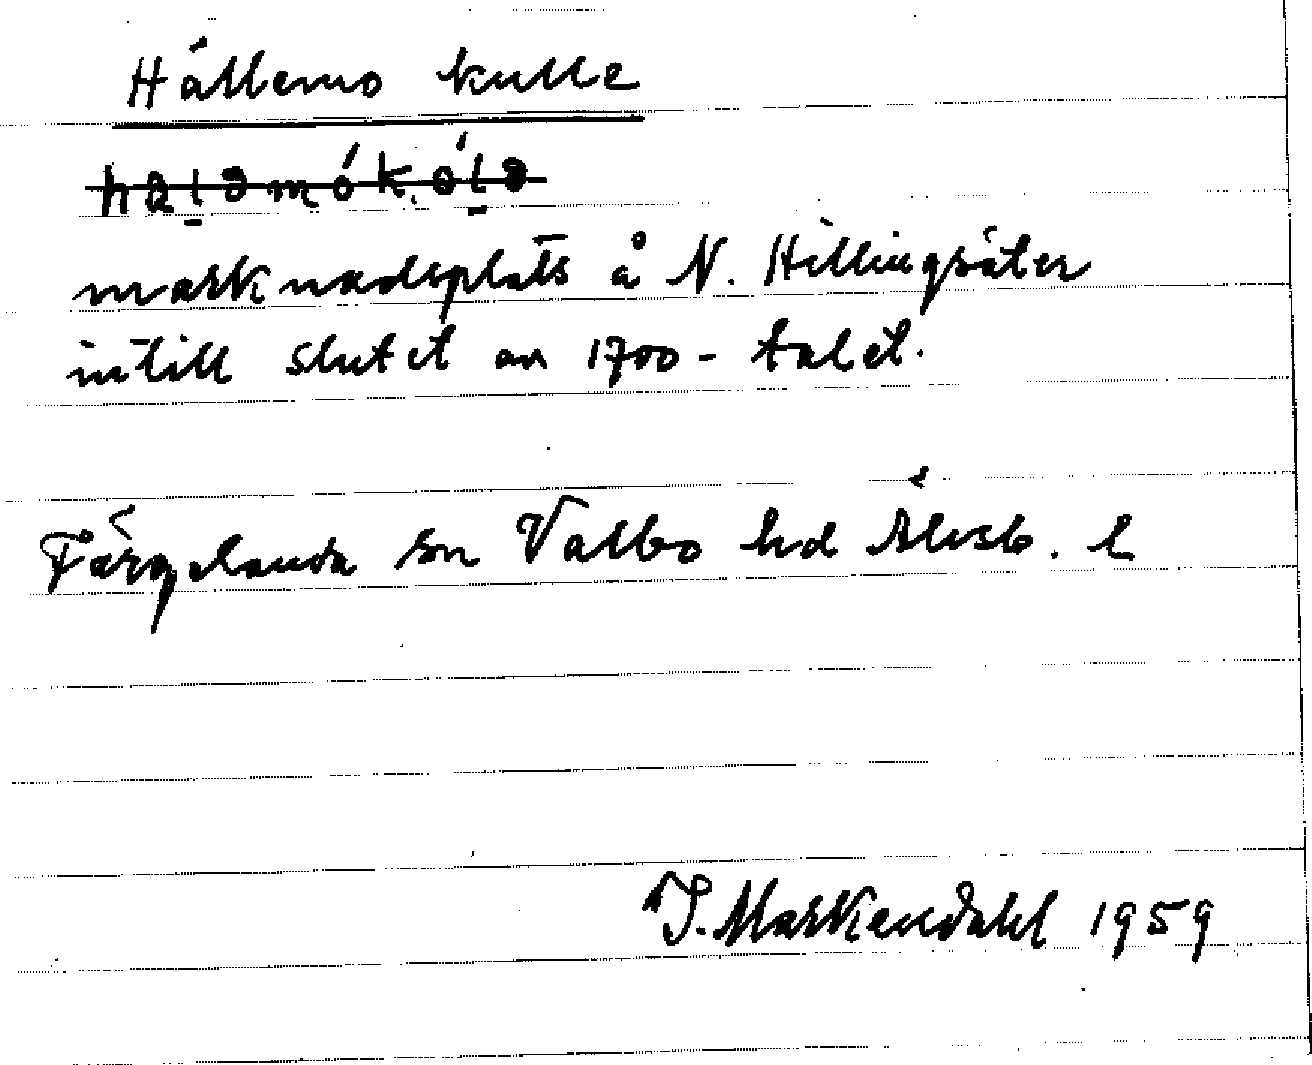 Hällemo kulle
marknadsplats å N. Hillingsäter
intill slutet av 1700-talet.
Färgelanda sn Valbo hd Älvsb. l
J. Markendahl 1959